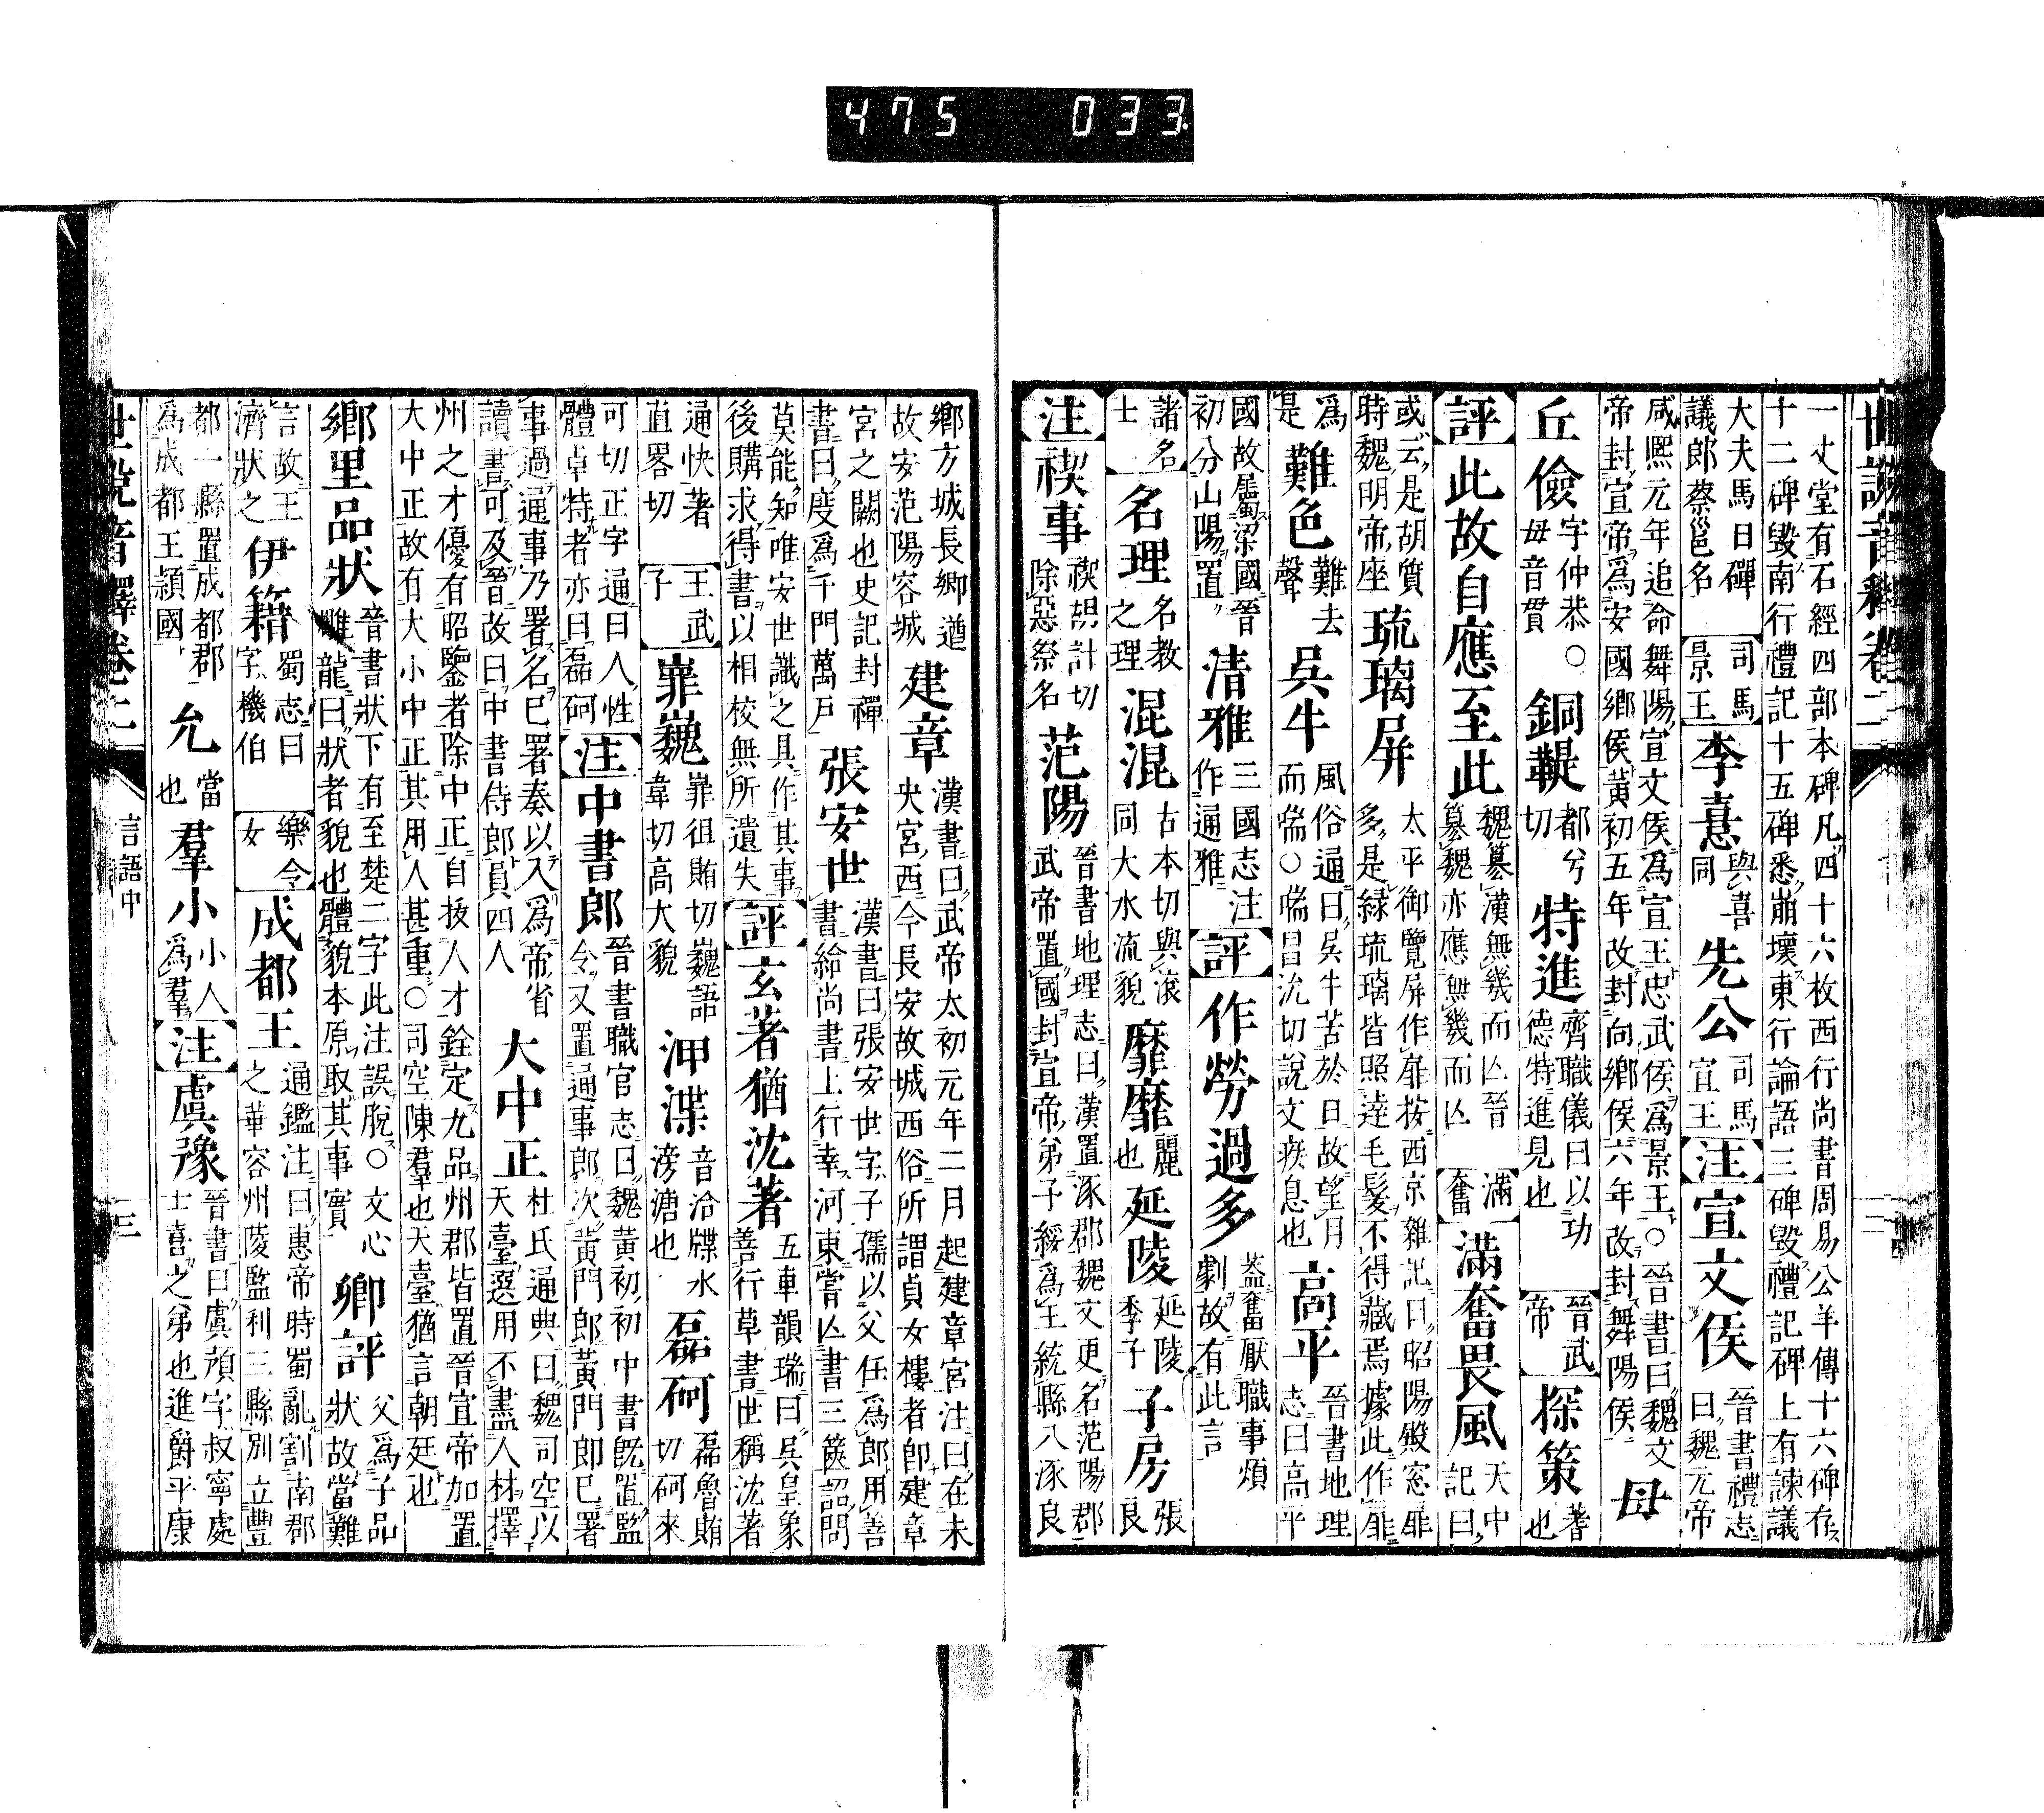 475 033
世說音釋卷二
一丈堂有石經四部本碑凡四十六枚西行尚書周易公羊傳十六碑存
十二碑毀南行禮記十五碑悉崩壞東行論語三碑毀禮記碑上有諫議
大夫馬日磾議郎蔡邕名 司馬景王 李憙 與喜同 先公 司馬宣王 注 宣文侯 晉書禮志曰魏元帝
咸熙元年追命舞陽宣文侯為宣王忠武侯為景王○晉書曰魏文
帝封宣帝為安國鄉侯黃初五年改封向鄉侯六年改封舞陽侯 毌
丘儉 字仲恭○毌音貫 銅鞮 都兮切 特進 齊職儀曰以功德特進見也 晉武帝 探策 蓍也
評 此故自應至此 魏簒漢無幾而亾晉簒魏亦應無幾而亾 滿奮 滿奮畏風 天中記曰
或云是胡質時魏明帝座 琉璃屏 太平御覽屏作扉按西京雜記曰昭陽殿窓扉多是綠琉璃皆照達毛髮不得藏焉據此作扉
為是 難色 難去聲 吳牛 風俗通曰吳牛苦於日故望月而喘○喘昌沇切說文疾息也 高平 晉書地理志曰高平
國故屬梁國晉初分山陽置 清雅 三國志注作通雅 評 作勞過多 蓋奮厭職事煩劇故有此言
諸名士 名理 名教之理 混混 古本切與滾同大水流貌 靡靡 麗也 延陵 延陵季子 子房 張良
注 禊事 禊胡計切除惡祭名 范陽 晉書地理志曰漢置涿郡魏文更名范陽郡武帝置國封宣帝弟子綏為王統縣八涿良
鄉方城長鄉遒故安范陽容城 建章 漢書曰武帝太初元年二月起建章宮注曰在未央宮西今長安故城西俗所謂貞女樓者即建章
宮之闕也史記封禪書曰度為千門萬戶 張安世 漢書曰張安世字子孺以父任為郎用善書給尚書上行幸河東嘗亾書三篋詔問
莫能知唯安世識之具作其事後購求得書以相校無所遺失 評 玄著猶沈著 五車韻瑞曰吳皇象善行草書世稱沈著
通快著直畧切 王武子 辠巍 辠徂賄切巍語韋切高大貌 浹渫 音洽牒水滂溏也 磊砢 磊魯賄切砢來
可切正字通曰人性體卓特者亦曰磊砢 注 中書郎 晉書職官志曰魏黃初初中書既置監令又置通事郎次黃門郎黃門郎已署
事過通事乃署名已署奏以入為帝省讀書可及晉故曰中書侍郎員四人 大中正 杜氏通典曰魏司空以天臺選用不盡人材擇
州之才優有昭鑒者除中正自拔人才銓定九品州郡皆置晉宣帝加置
大中正故有大小中正其用人甚重○司空陳羣也天臺猶言朝廷也
鄉里品狀 晉書狀下有至楚二字此注誤脫○文心雕龍曰狀者貌也體貌本原取其事實 卿評 父為子品狀故當難
言故王濟狀之 伊籍 蜀志曰字機伯 樂令女 成都王 通鑑注曰惠帝時蜀亂割南郡之華容州陵監利三縣別立豐
都一縣置成都郡為成都王穎國 允 當也 羣小 小人為羣 注 虞豫 晉書曰虞預字叔寧處士喜之弟也進爵平康
世說音釋卷二 言語中 三